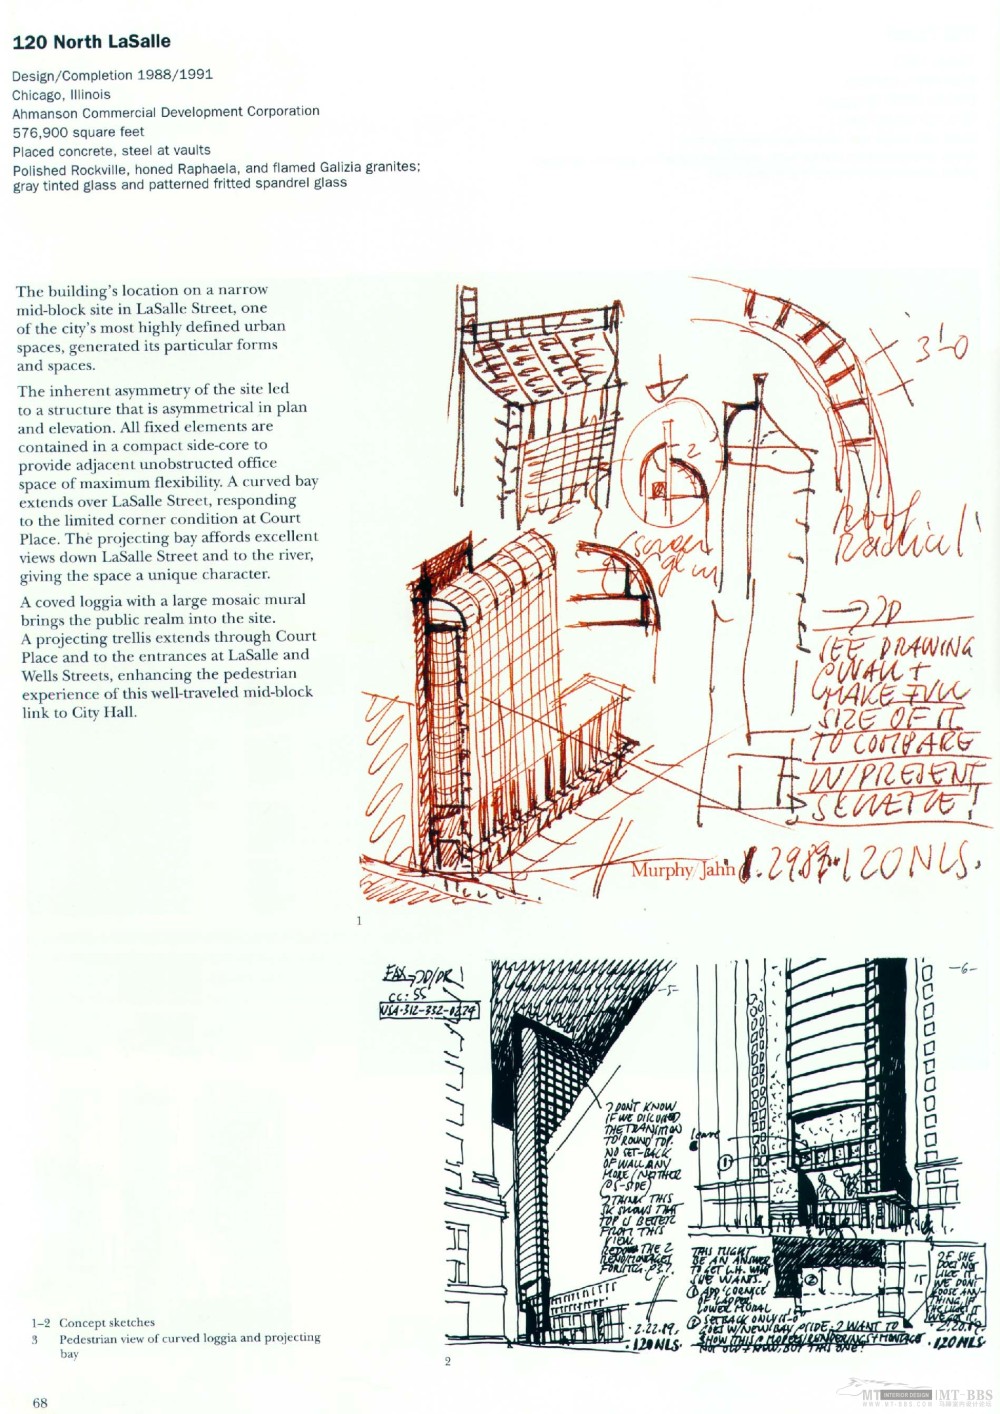 120 North LaSalle
Design/Completion 1988/1991
Chicago, Illinois
Ahmanson Commercial Development Corporation
576,900 square feet
Placed concrete, steel at vaults
Polished Rockville, honed Raphaela, and flamed Galizia granites;
gray tinted glass and patterned fritted spandrel glass
The building's location on a narrow
mid-block site in LaSalle Street, one
of the city's most highly defined urban
spaces, generated its particular forms
and spaces.
The inherent asymmetry of the site led
to a structure that is asymmetrical in plan
and elevation. All fixed elements are
contained in a compact side-core to
provide adjacent unobstructed office
space of maximum flexibility. A curved bay
extends over LaSalle Street, responding
to the limited corner condition at Court
Place. The projecting bay affords excellent
views down LaSalle Street and to the river,
giving the space a unique character.
A coved loggia with a large mosaic mural
brings the public realm into the site.
A projecting trellis extends through Court
Place and to the entrances at LaSalle and
Wells Streets, enhancing the pedestrian
experience of this well-traveled mid-block
link to City Hall.
3'-0
2'
SEE DRAWING
MAKE FULL
SIZE OF IT
TO COMPARE
W/PRESENT
Murphy/Jahn 1.29.89.120NLS.
1
FAX→JD/DR
CC: SS
USA-312-332-0274
-5-
-6-
I DON'T KNOW
IF WE DISCUSSED
THE TRANSITION
TO ROUND TOP.
NO SET-BACK
OF WALL ANY
MORE (NEITHER
I THINK THIS
SK SHOWS THAT
TOP IS BETTER
FROM THIS
VIEW.
THE 2
leave
1
THIS MIGHT
BE AN ANSWER
TO GET L.H. WHAT
SHE WANTS.
① ADD CORNICE
LOWER MURAL
② SETBACK ONLY
GOES W/NEW BAY I WANT TO
SHOW THIS
NOT OLD + NEW, BUT THIS ONE!
2
IF SHE
DOES NOT
LIKE IT
WE DON'T
LOOSE ANY-
THING, IF
SHE LIKES IT
WE GOT IT.
2.22.89.
120NLS.
2.20.89.
120NLS.
2
1–2 Concept sketches
3 Pedestrian view of curved loggia and projecting
bay
68
MT INTERIOR DESIGN |MT-BBS
WWW.MT-BBS.COM